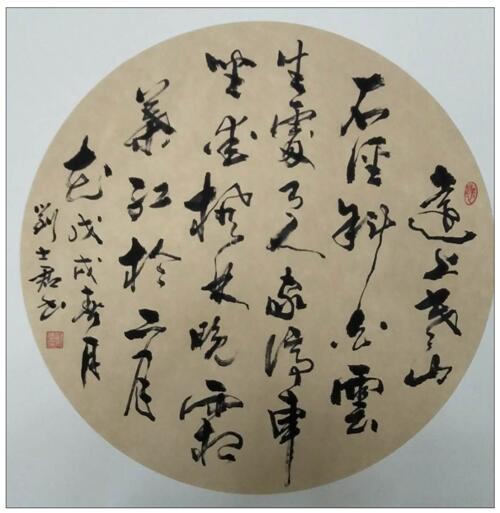 遠上寒山
石徑斜白雲
生處有人家停車
坐愛楓林晚霜
葉红於二月
花戊戌春月
劉士君书